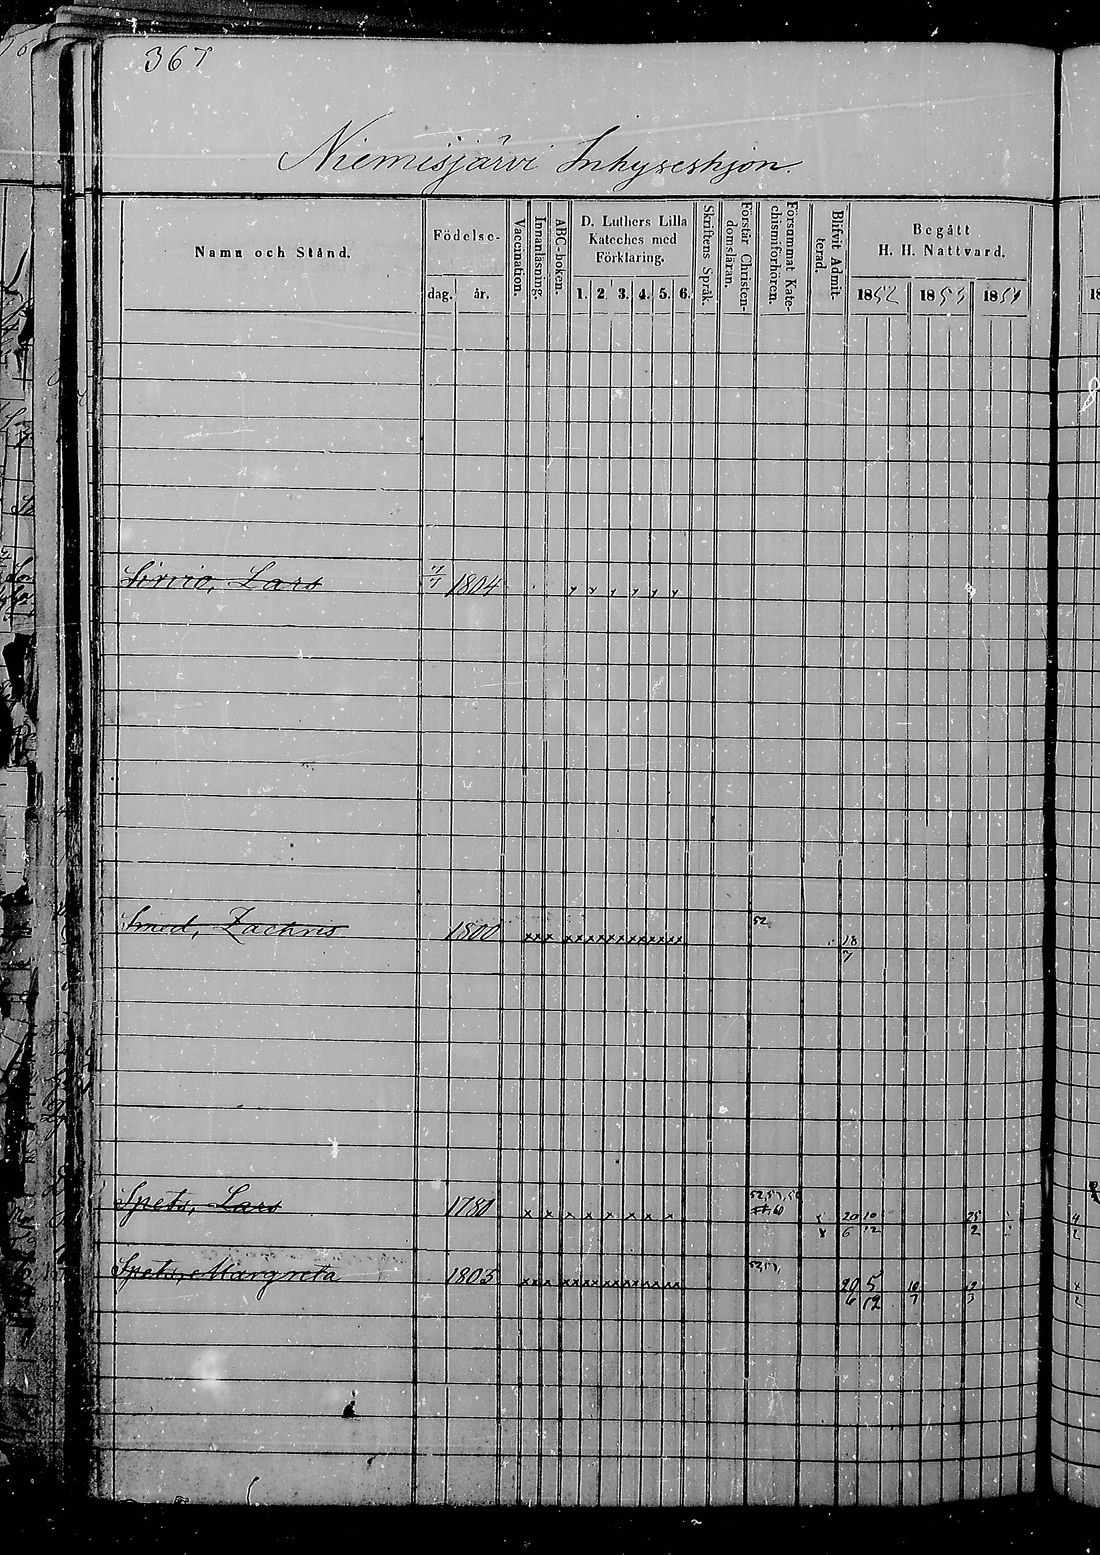 367
Niemisjärvi Inhyseshjon.
Namn och Stånd.
Födelse-
dag. år.
Vaccination.
Innanläsning.
ABC-boken.
D. Luthers Lilla
Kateches med
Förklaring.
1. 2. 3. 4. 5. 6.
Skriftens Språk.
Förstår Christen-
domsläran.
Försummat Kate-
chismiförhören.
Blifvit Admit-
terad.
Begått
H. H. Nattvard.
1852 1853 1854
Lars 1804
Smed, Zachris 1800 xxx xxxxxxxxxxxx 52
18
7
Spets, Lars 1780 x x x x x x x x 20 10 25
6 12 2
Spets, Margreta 1805 xxx xxxxxxxxxxxx 20 5 10
6 12 7